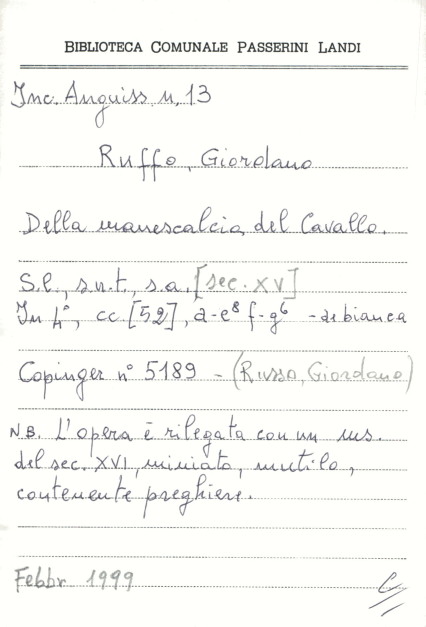 BIBLIOTECA COMUNALE PASSERINI LANDI
Inc. Anguiss n. 13
Ruffo, Giordano
Della manescalcia del Cavallo.
S.l., s.n.t., s.a. [sec. XV]
In 4°, cc. [52], a-e⁸ f-g⁶ - a1 bianca
Copinger n° 5189 - (Russo, Giordano)
N.B. L'opera è rilegata con un ms.
del sec. XVI, miniato, mutilo,
contenente preghiere.
Febbr 1999